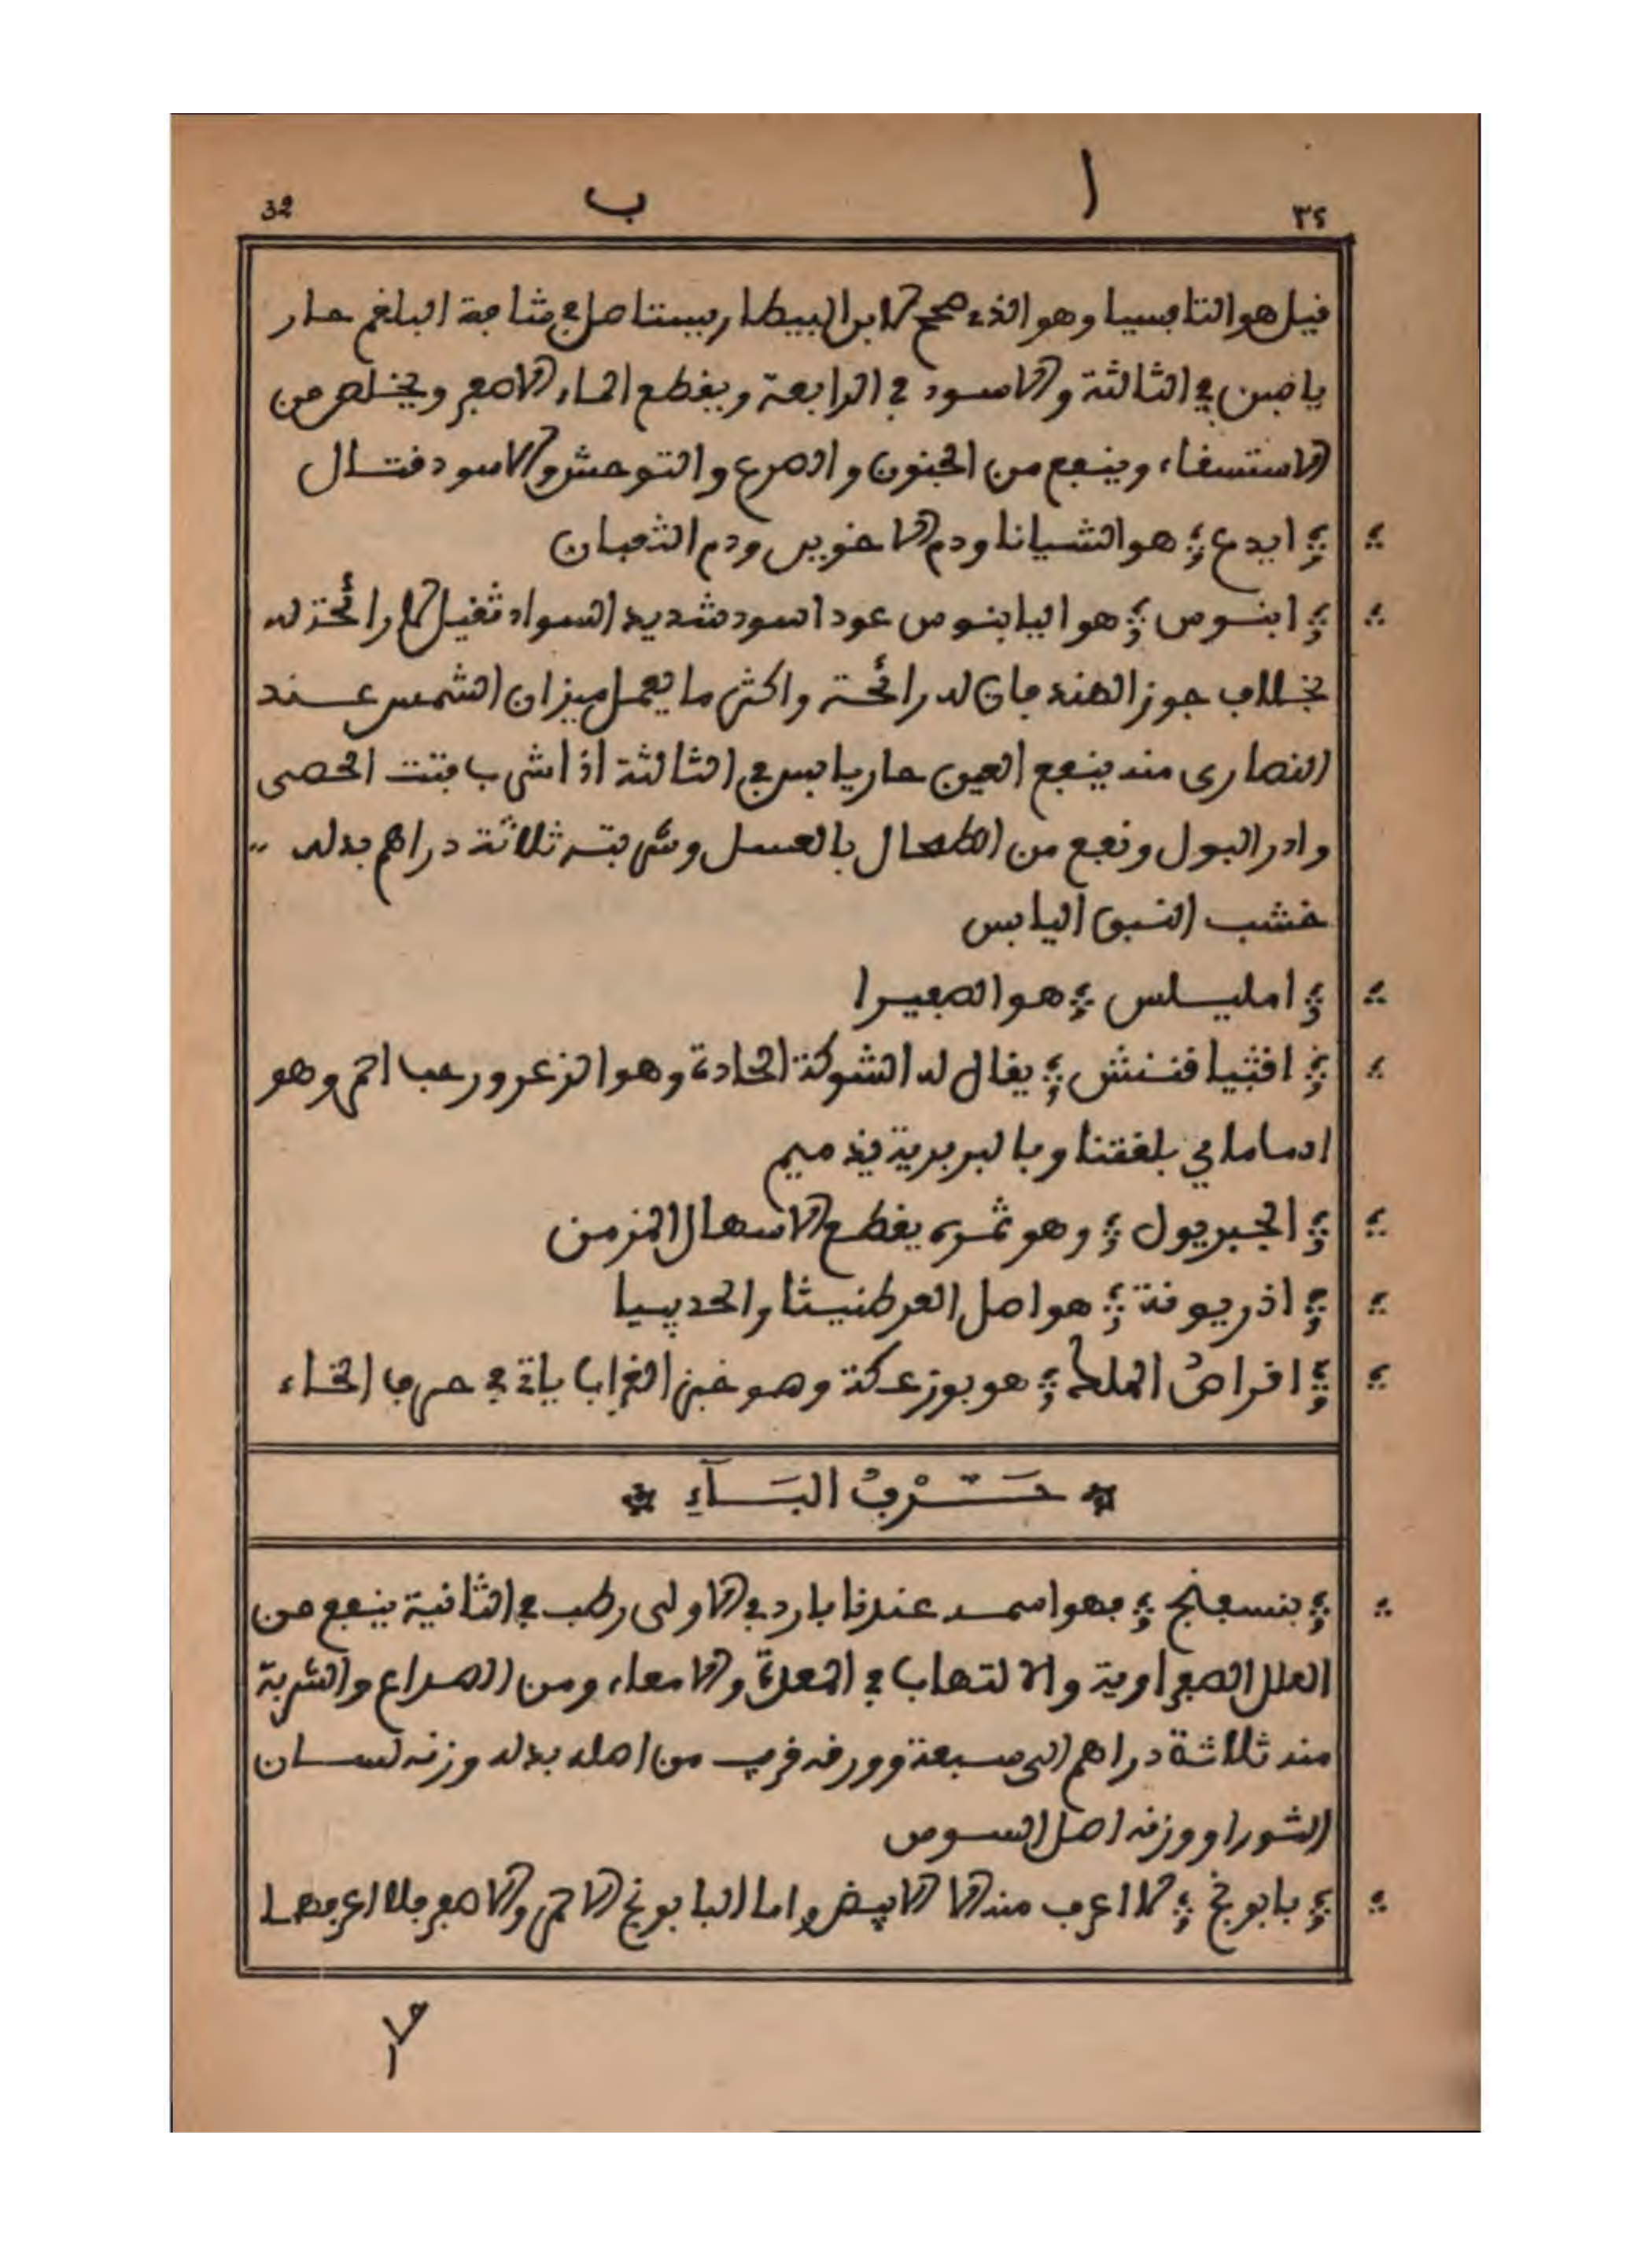 ا ب
٣٢ 32
قيل هو التافسيا وهو الذي صححه ابن البيطار يستاصل شافة البلغم حار
يابس في الثالثة والاسود في الرابعة ويقطع الماء الاصفر ويخلص من
الاستسقاء وينفع من الجنون والصرع والتوحش والاسود قتال
ايدع هو الشيانا ودم الاخوين ودم الثعبان
ابنوس هو اليابنوس عود اسود شديد السواد ثقيل لا رائحة له
بخلاف جوز الهند فان له رائحة واكثر ما يعمل ميزان الشمس عند
النصارى منه ينفع العين حار يابس في الثالثة اذا شرب فتت الحصى
وادر البول ونفع من الطحال بالعسل وشربته ثلاثة دراهم بدله
خشب النبق اليابس
امليلس هو الصفيرا
اقثيا قننش يقال له الشوكة الحادة وهو الزعرور حبا احمر وهو
ادماماي بلغتنا وبالبربرية
الجبريول وهو ثمره يقطع الاسهال المزمن
اذريونة هو اصل العرطنيثا والحدبيا
اقراص الملح هو بوزعكة وهو خبز الغراب ياتي في حرف الخاء
حَرْفُ البَآءِ
بنسفنج فهو اسمه عندنا بارد في الاولى رطب في الثانية ينفع من
العلل الصفراوية والالتهاب في المعدة والامعاء ومن الصداع والشربة
منه ثلاثة دراهم الى سبعة وورقه قريب من اصله بدله وزنه لسان
الثور او وزنه اصل السوس
بابونج لا اعرف منه الا الابيض واما البابونج الاحمر والاصفر فلا اعرفهما